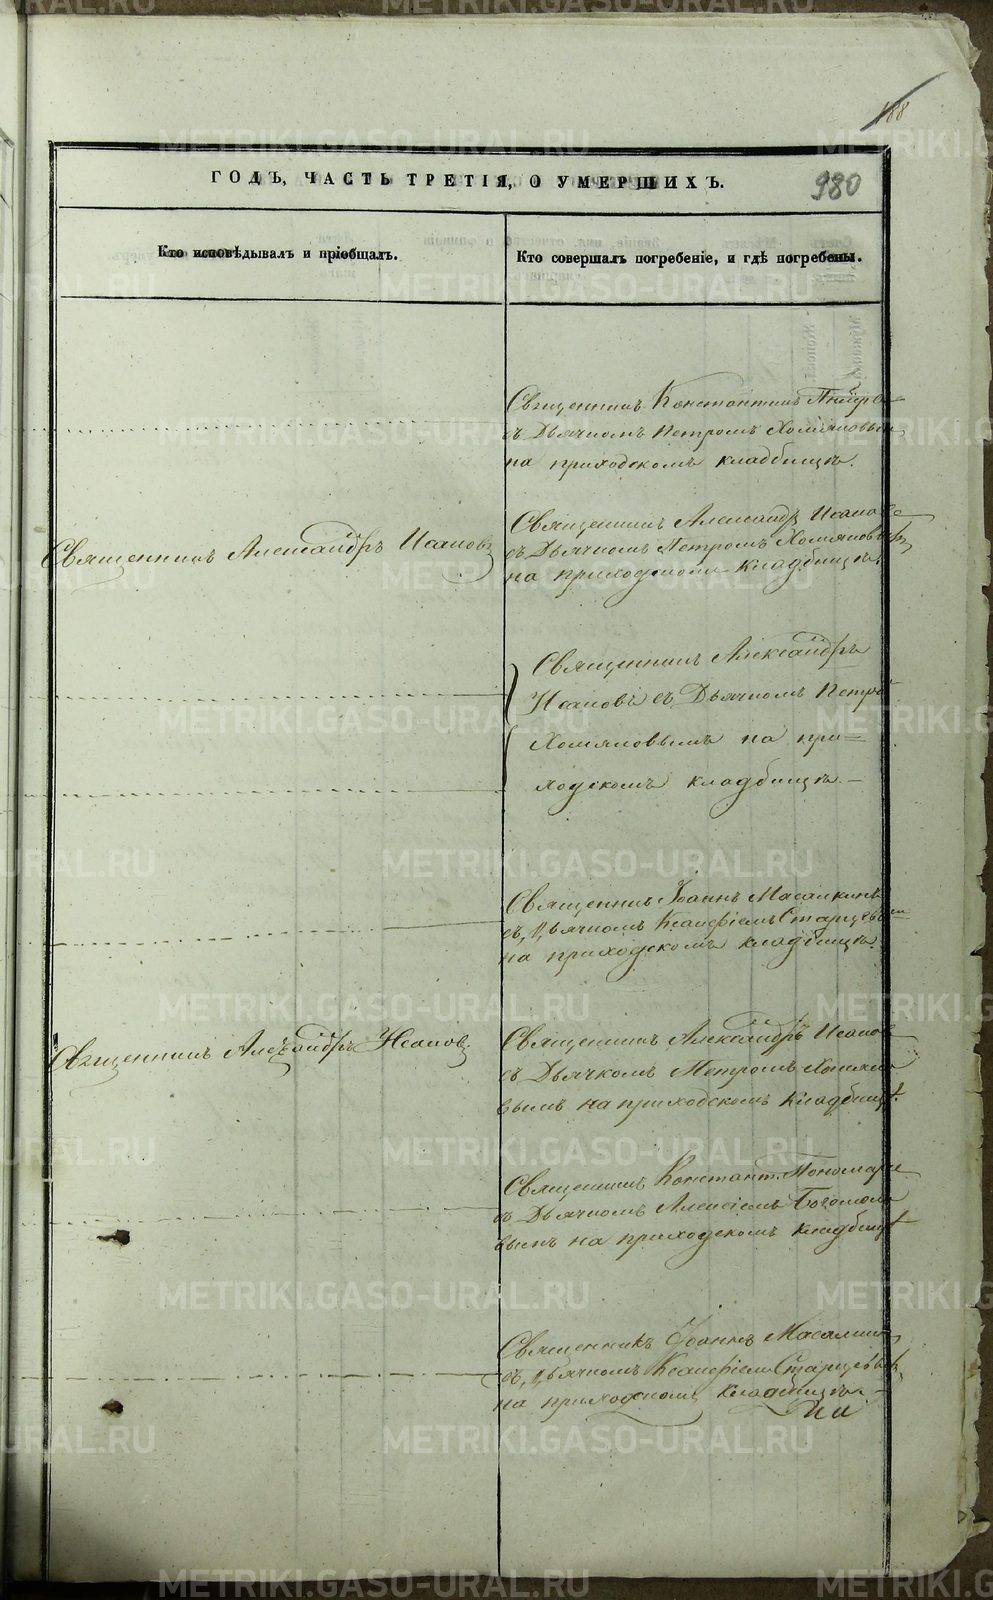 188
ГОДЪ, ЧАСТЬ ТРЕТІЯ, О УМЕРШИХЪ.
980
Кто исповѣдывалъ и пріобщалъ.
Кто совершалъ погребеніе, и гдѣ погребены.
Священникъ Константинъ
съ Дьячкомъ Петромъ Хомяковым
на приходскомъ кладбищѣ.
Священникъ Александръ Исаковъ
Священникъ Александр Исаков
съ Дьячкомъ Петромъ Хомяковым
на приходском кладбищѣ.
Священникъ Александръ
Исаковъ съ Дьячкомъ Петро
Хомяковымъ на при=
ходскомъ кладбищѣ.—
Священник Іоаннъ Масалкинъ
съ Дьячкомъ Ксанфіемъ Старцевым
на приходскомъ кладбищѣ.
Священникъ Александръ Исаков
Священникъ Александръ Исаков
съ Дьячкомъ Петромъ Хомяко
вымъ на приходскомъ кладбищѣ.
Священникъ Констант. Пономаре
съ Дьячкомъ Алексіемъ Богомоло
вымъ на приходскомъ кладбищѣ
Священникъ Іоаннъ Масалкин
съ Дьячкомъ Ксанфіем Старцевым
на приходском кладбищѣ.—
METRIKI.GASO-URAL.RU